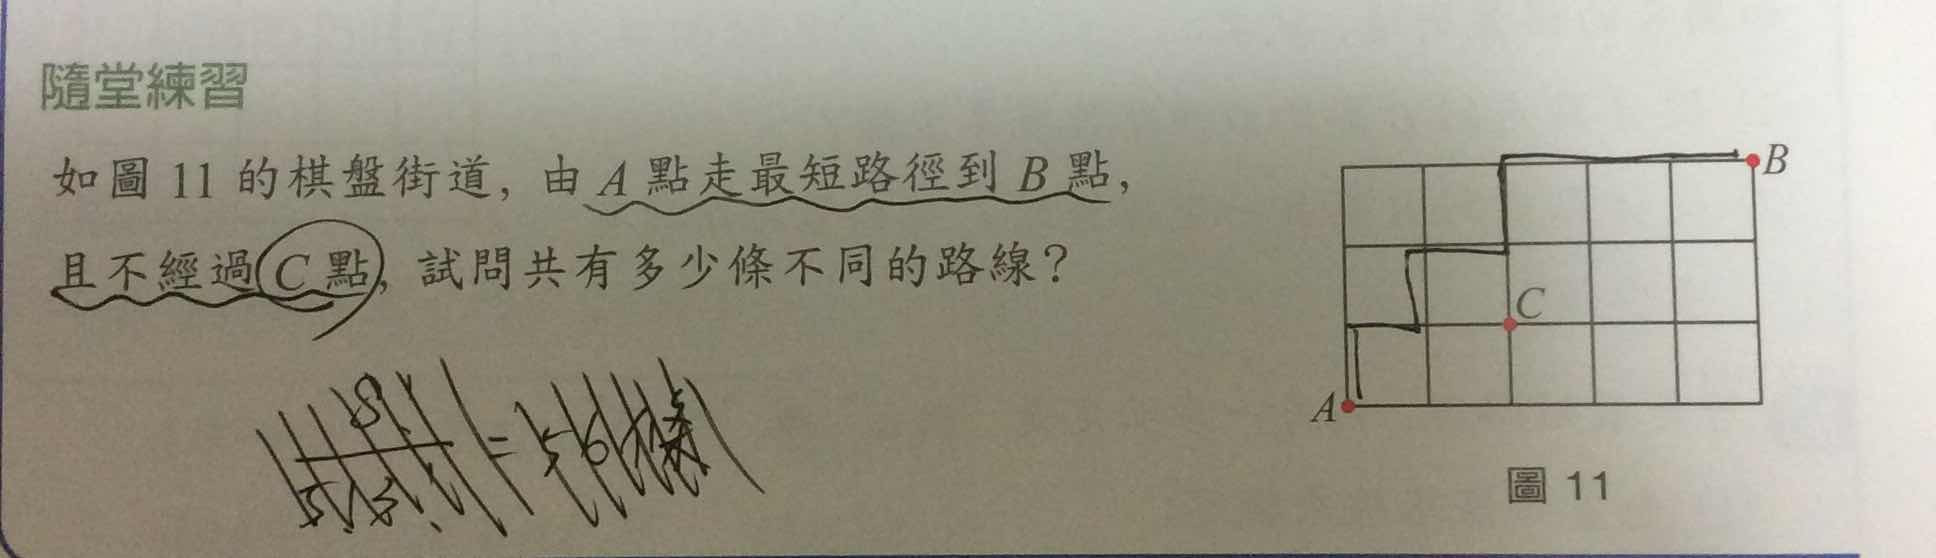 隨堂練習
如圖 11 的棋盤街道，由 A 點走最短路徑到 B 點，
且不經過 C 點，試問共有多少條不同的路線？
B
C
A
圖 11